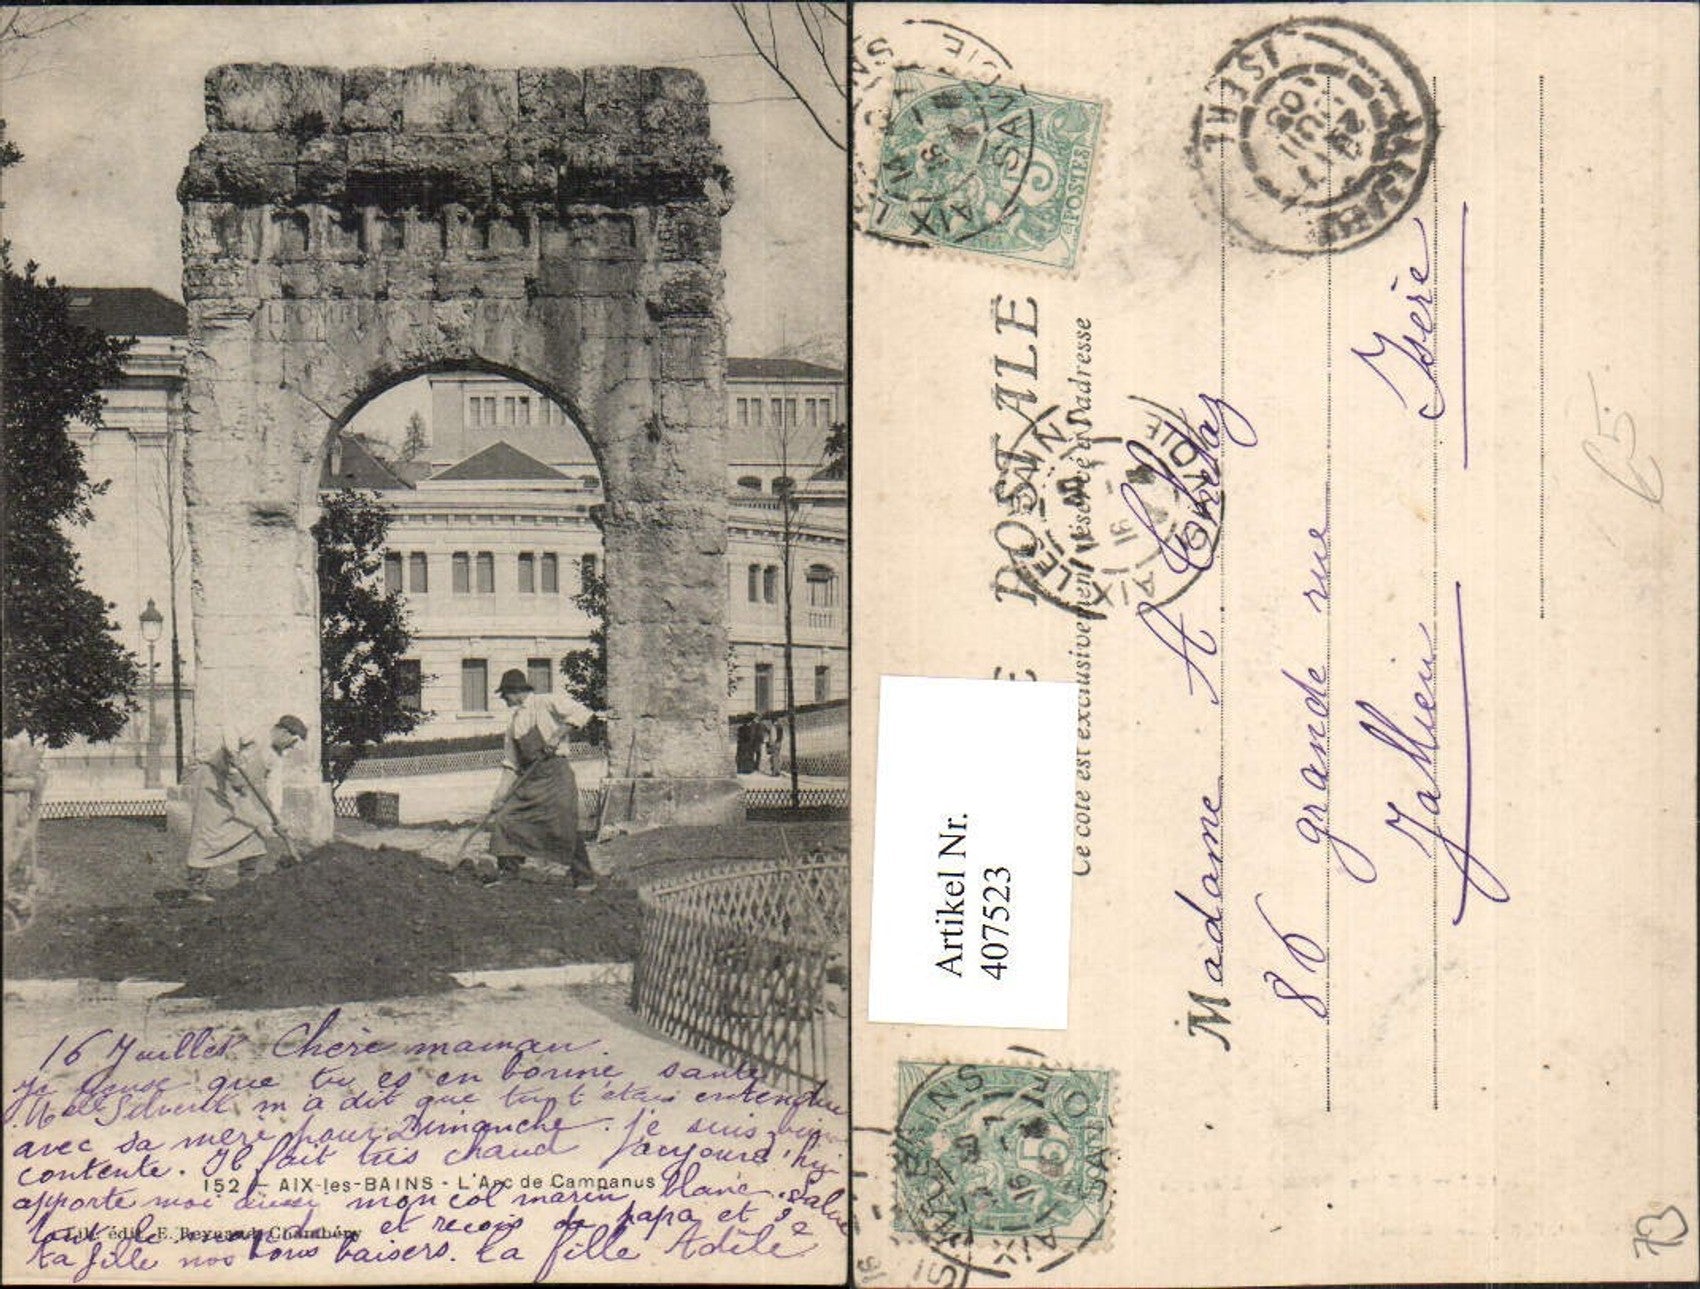 L POMPEIVS CAMPANVS
16 Juillet Chère maman.
Je pense que tu es en bonne santé
Melle Silvent m'a dit que tu t'étais entendue
avec sa mère pour Dimanche. je suis
contente. Il fait très chaud aujourd'hui
152 - AIX-les-BAINS - L'Arc de Campanus
apporte moi aussi mon col marin blanc. Salue
tout le monde et reçois de papa et de
édit. E. Reynaud, Chambéry
ta fille nos bons baisers. ta fille Adèle
POSTALE
Ce côté est exclusivement réservé à l'adresse
Madame A Chedaz
86 grande rue
Jallieu Isère
Artikel Nr.
407523
5
POSTES
AIX
JALLIEU
ISERE
AIX LES BAINS
SAVOIE
16
5
AIX
SAVOIE
16
65